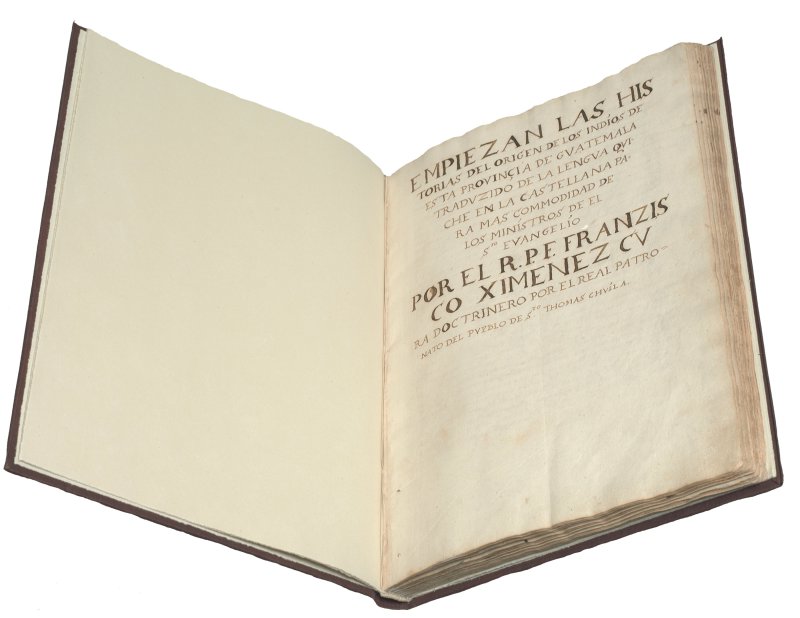 EMPIEZAN LAS HIS
TORIAS DEL ORIGEN DE LOS INDÍOS DE
ESTA PROVINÇIA DE GVATEMALA
TRADVZIDO DE LA LENGVA QVI-
CHE EN LA CASTELLANA PA-
RA MAS COMMODIDAD DE
LOS MINISTROS DE EL
Sto EVANGELIO
POR EL R.P.F. FRANZIS
CO XIMENEZ CV
RA DOCTRINERO POR EL REAL PATRO-
NATO DEL PVEBLO DE Sto THOMAS CHVILA.